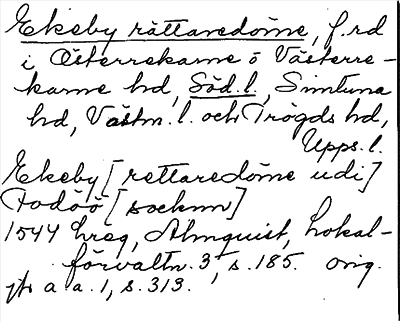 Ekeby rättaredöme, f.rd
i Österrekarne o Västerre-
karne hd, Söd.l., Simtuna
hd, Västm.l. och Trögds hd,
Upps.l.
Ekeby [rettaredöme udi]
Todöö [socknn]
1544 hreg, Almquist, Lokal-
förvaltn. 3, s.185. orig.
jfr a a.1, s.313.